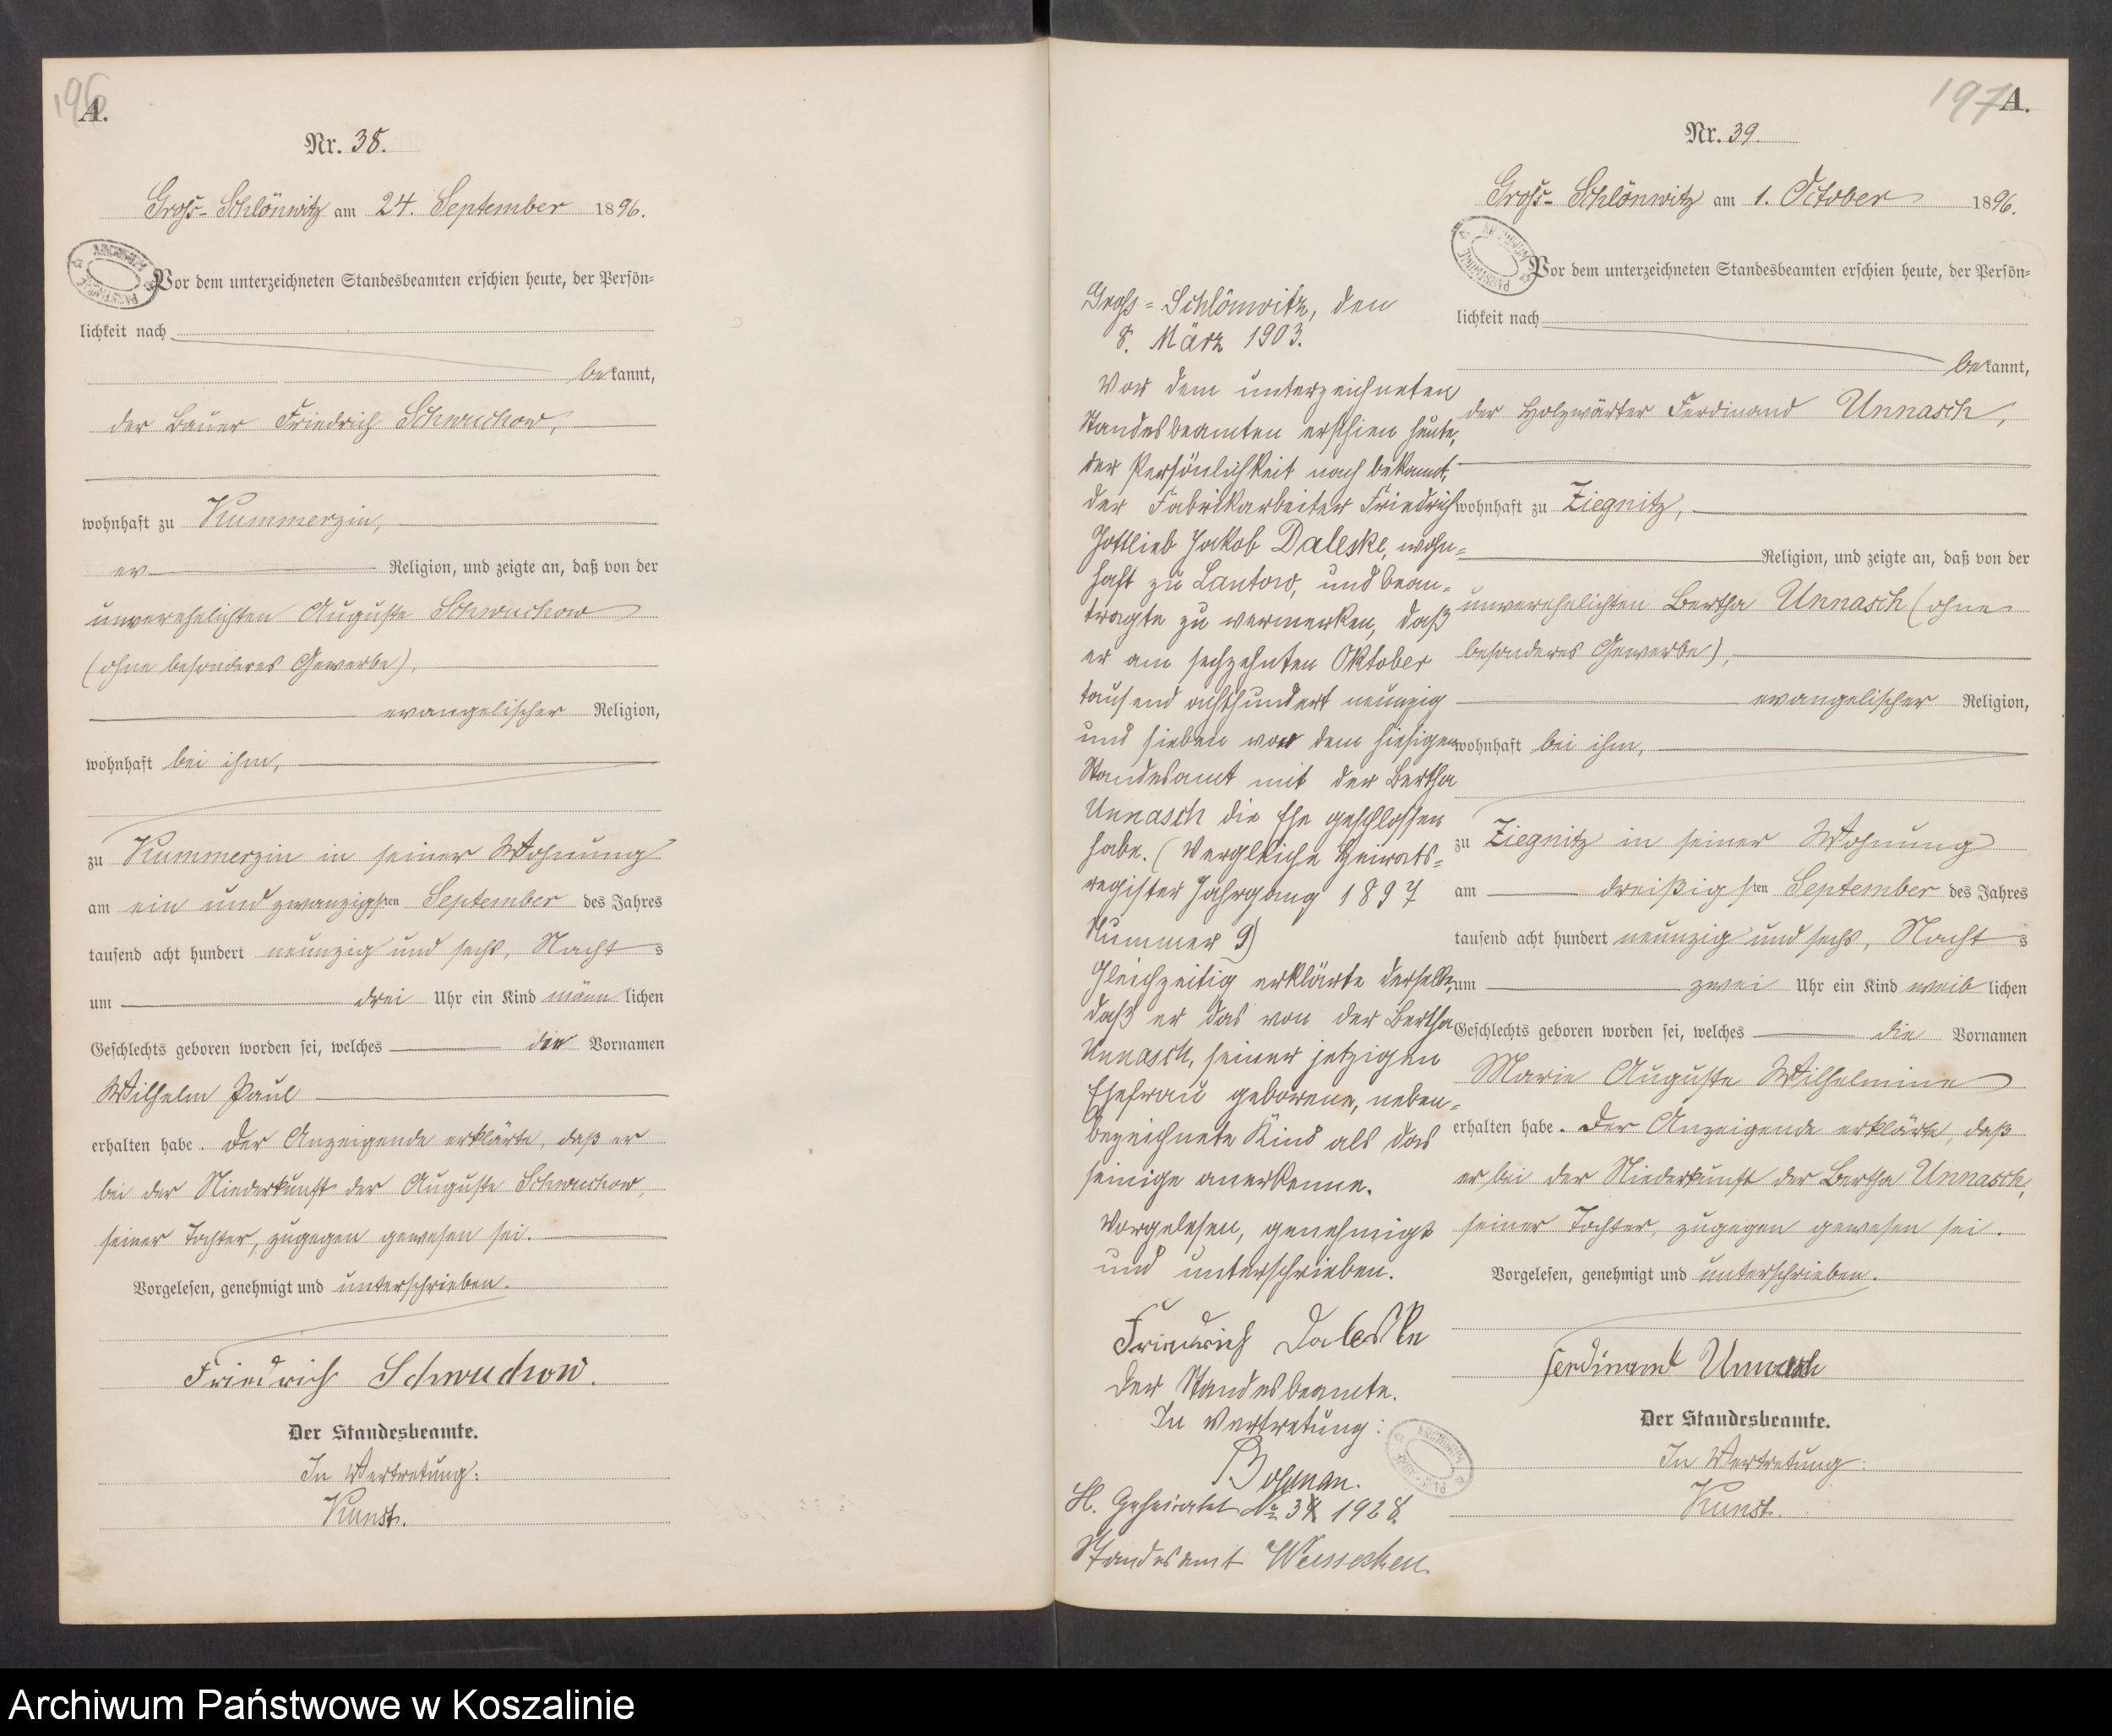 196
A.
Nr. 38.
Groß-Schlönwitz am 24. September 1896.
Vor dem unterzeichneten Standesbeamten erschien heute, der Persön=
lichkeit nach
bekannt,
der Bauer Friedrich Schwuchow,
wohnhaft zu Kummerzin,
Religion, und zeigte an, daß von der
unverehelichten Auguste Schwuchow
(ohne besonderes Gewerbe),
evangelischer Religion,
wohnhaft bei ihm,
zu Kummerzin in seiner Wohnung
am ein und zwanzigsten September des Jahres
tausend acht hundert neunzig und sechs, Nachts
um drei Uhr ein Kind männlichen
Geschlechts geboren worden sei, welches die Vornamen
Wilhelm Paul
erhalten habe. Der Anzeigende erklärte, daß er
bei der Niederkunft der Auguste Schwuchow,
seiner Tochter, zugegen gewesen sei.
Vorgelesen, genehmigt und unterschrieben.
Friedrich Schwuchow.
Der Standesbeamte.
In Vertretung:
Kunst.
197
A.
Nr. 39.
Groß-Schlönwitz am 1. October 1896.
Vor dem unterzeichneten Standesbeamten erschien heute, der Persön=
lichkeit nach
bekannt,
der Holzwärter Ferdinand Unnasch,
wohnhaft zu Ziegnitz,
Religion, und zeigte an, daß von der
unverehelichten Bertha Unnasch (ohne
besonderes Gewerbe),
evangelischer Religion,
wohnhaft bei ihm,
zu Ziegnitz in seiner Wohnung
am dreißigsten September des Jahres
tausend acht hundert neunzig und sechs, Nachts
um zwei Uhr ein Kind weiblichen
Geschlechts geboren worden sei, welches die Vornamen
Marie Auguste Wilhelmine
erhalten habe. Der Anzeigende erklärte, daß
er bei der Niederkunft der Bertha Unnasch,
seiner Tochter, zugegen gewesen sei.
Vorgelesen, genehmigt und unterschrieben.
Ferdinand Unnasch
Der Standesbeamte.
In Vertretung:
Kunst.
Groß=Schlönwitz, den
8. März 1903.
Vor dem unterzeichneten
Standesbeamten erschien heute,
der Persönlichkeit nach bekannt,
der Fabrikarbeiter Friedrich
Gottlieb Jakob Daleske, wohn=
haft zu Lantow, und bean=
tragte zu vermerken, daß
er am sechzehnten Oktober
tausend achthundert neunzig
und sieben vor dem hiesigen
Standesamt mit der Bertha
Unnasch die Ehe geschlossen
habe. (Vergleiche Heirats=
register Jahrgang 1897
Nummer 9)
Gleichzeitig erklärte derselbe,
daß er das von der Bertha
Unnasch, seiner jetzigen
Ehefrau geborene, neben=
bezeichnete Kind als das
seinige anerkenne.
Vorgelesen, genehmigt
und unterschrieben.
Friedrich Daleske
Der Standesbeamte.
In Vertretung:
H. Geheiratet No 1928.
Standesamt
Archiwum Państwowe w Koszalinie